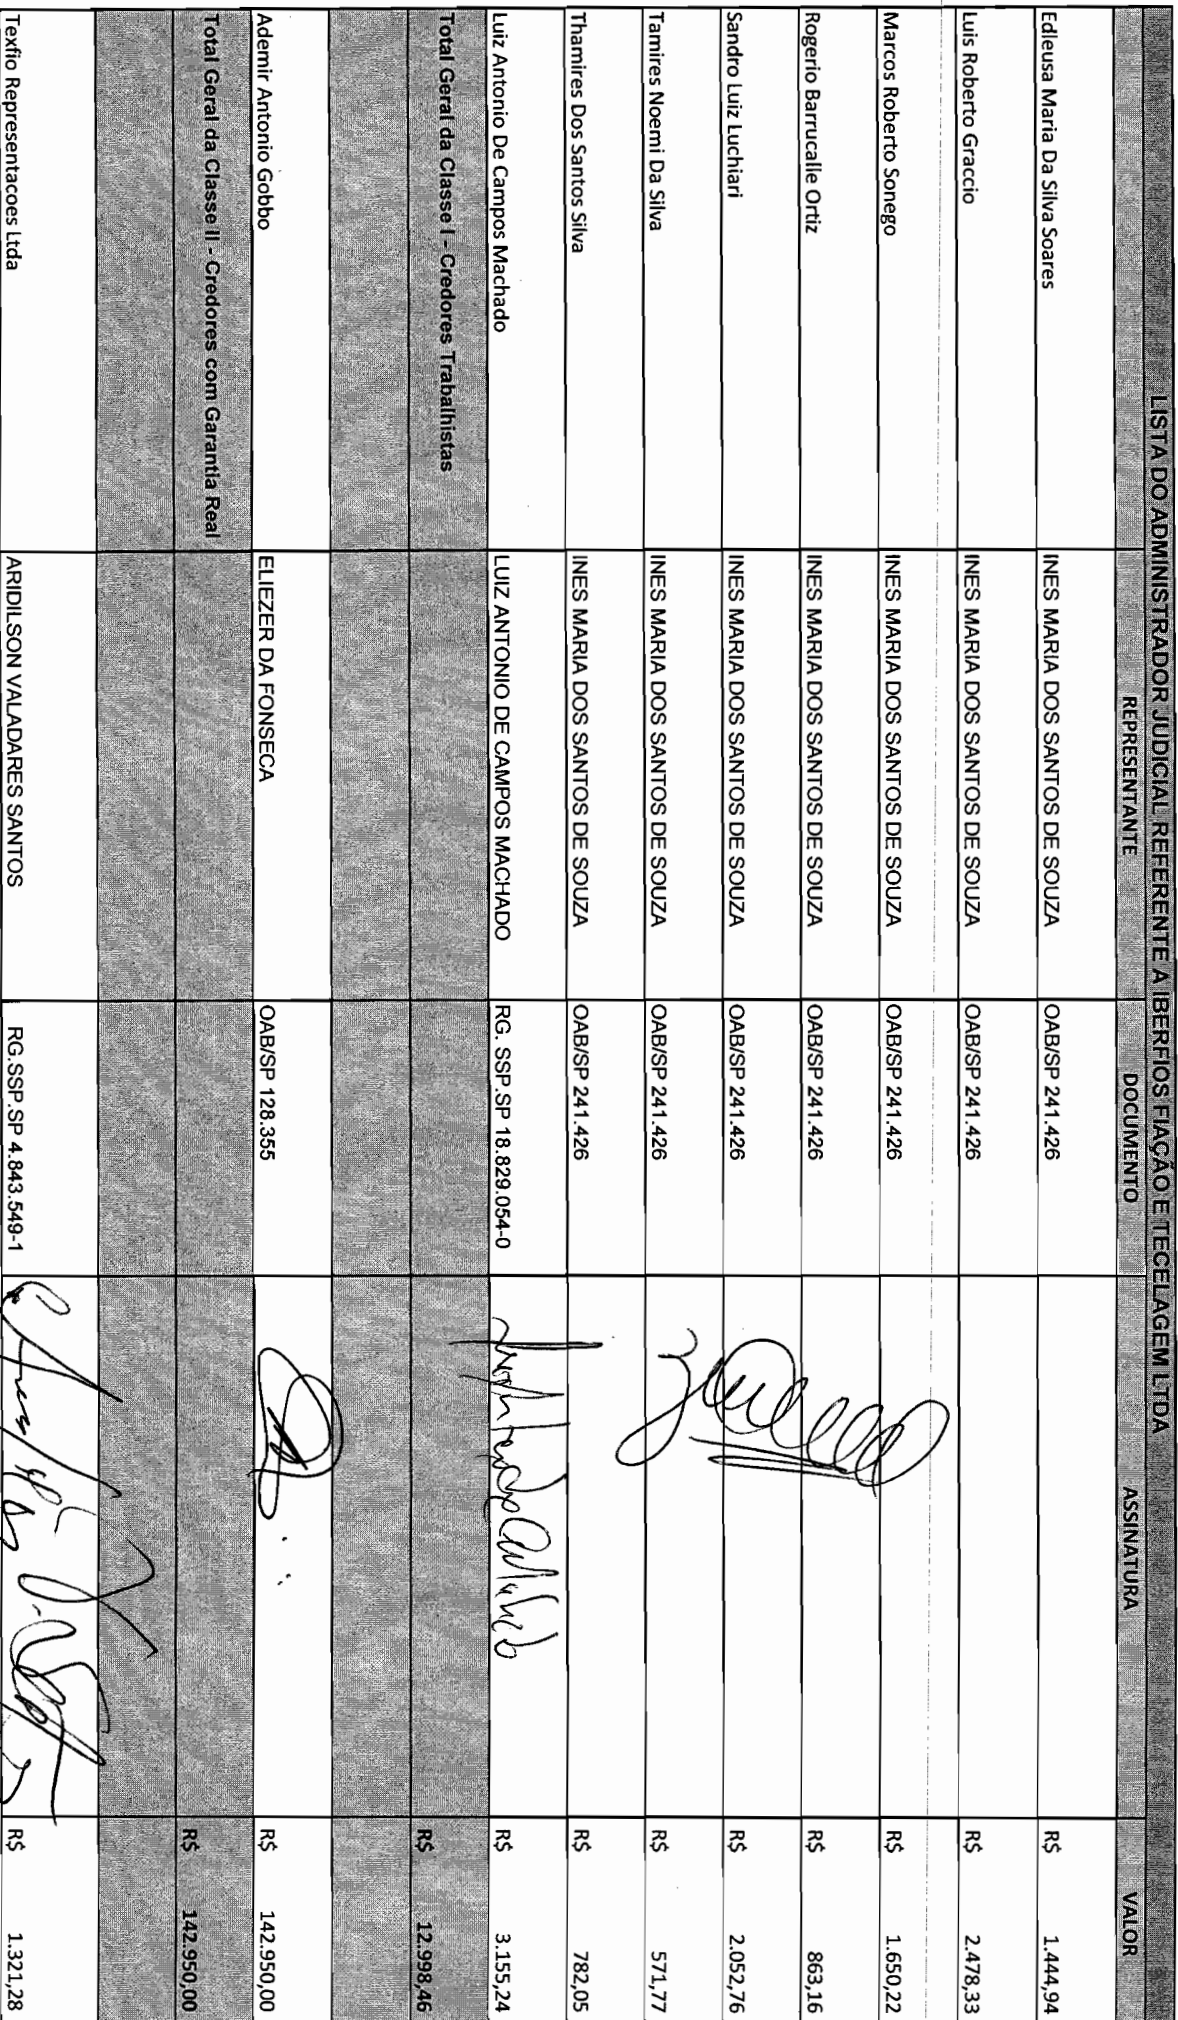 LISTA DO ADMINISTRADOR JUDICIAL REFERENTE A IBERFIOS FIAÇÃO E TECELAGEM LTDA
REPRESENTANTE DOCUMENTO ASSINATURA VALOR
Edleusa Maria Da Silva Soares INES MARIA DOS SANTOS DE SOUZA OAB/SP 241.426 R$ 1.444,94
Luis Roberto Graccio INES MARIA DOS SANTOS DE SOUZA OAB/SP 241.426 R$ 2.478,33
Marcos Roberto Sonego INES MARIA DOS SANTOS DE SOUZA OAB/SP 241.426 R$ 1.650,22
Rogerio Barrucalle Ortiz INES MARIA DOS SANTOS DE SOUZA OAB/SP 241.426 R$ 863,16
Sandro Luiz Luchiari INES MARIA DOS SANTOS DE SOUZA OAB/SP 241.426 R$ 2.052,76
Tamires Noemi Da Silva INES MARIA DOS SANTOS DE SOUZA OAB/SP 241.426 R$ 571,77
Thamires Dos Santos Silva INES MARIA DOS SANTOS DE SOUZA OAB/SP 241.426 R$ 782,05
Luiz Antonio De Campos Machado LUIZ ANTONIO DE CAMPOS MACHADO RG. SSP.SP 18.829.054-0 R$ 3.155,24
Total Geral da Classe I - Credores Trabalhistas R$ 12.998,46
Ademir Antonio Gobbo ELIEZER DA FONSECA OAB/SP 128.355 R$ 142.950,00
Total Geral da Classe II - Credores com Garantia Real R$ 142.950,00
Texfio Representacoes Ltda ARIDILSON VALADARES SANTOS RG.SSP.SP 4.843.549-1 R$ 1.321,28